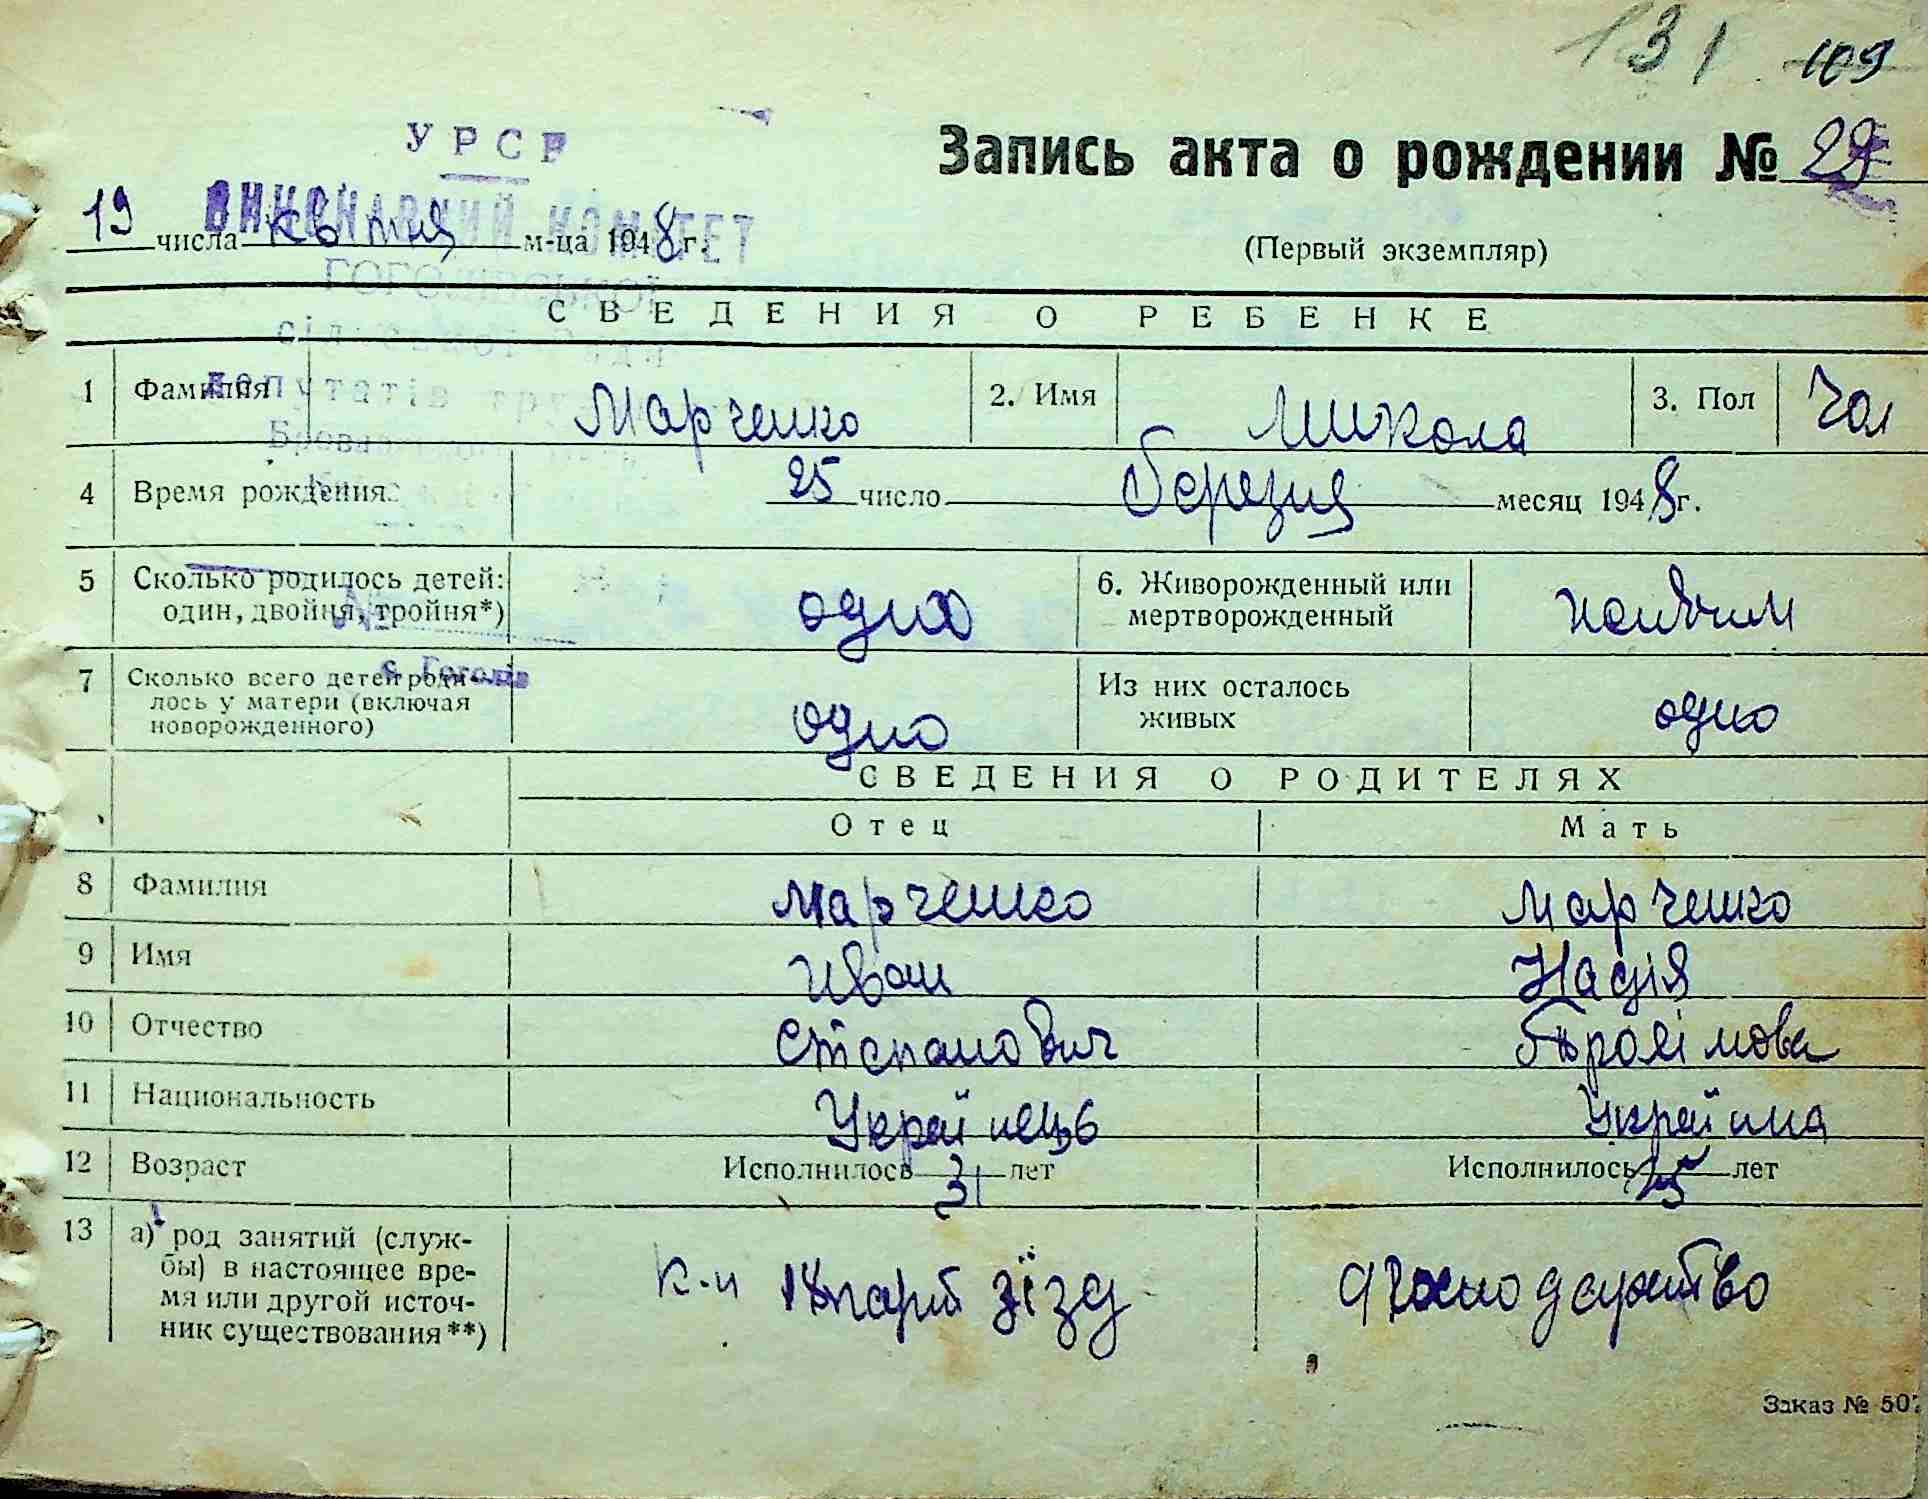 131 109
УРСР
Запись акта о рождении № 29
ВИКОНАВЧИЙ КОМІТЕТ
19 числа квітня м-ца 1948 г.
(Первый экземпляр)
ГОГОЛІВСЬКОЇ
сільської Ради
СВЕДЕНИЯ О РЕБЕНКЕ
депутатів
1 Фамилия Марченко 2. Имя Микола 3. Пол Чол
4 Время рождения 25 число березня месяц 1948 г.
5 Сколько родилось детей: один, двойня, тройня*) одно 6. Живорожденный или мертворожденный
№
с. Гоголів
7 Сколько всего детей родилось у матери (включая новорожденного) одно Из них осталось живых одно
СВЕДЕНИЯ О РОДИТЕЛЯХ
Отец Мать
8 Фамилия Марченко Марченко
9 Имя Иван Надія
10 Отчество Степанович
11 Национальность Украінець Украінка
12 Возраст Исполнилось 31 лет Исполнилось 25 лет
13 а) род занятий (служ-
бы) в настоящее вре-
мя или другой источ-
ник существования**)
к-п 18 парт зїзд
Заказ № 507